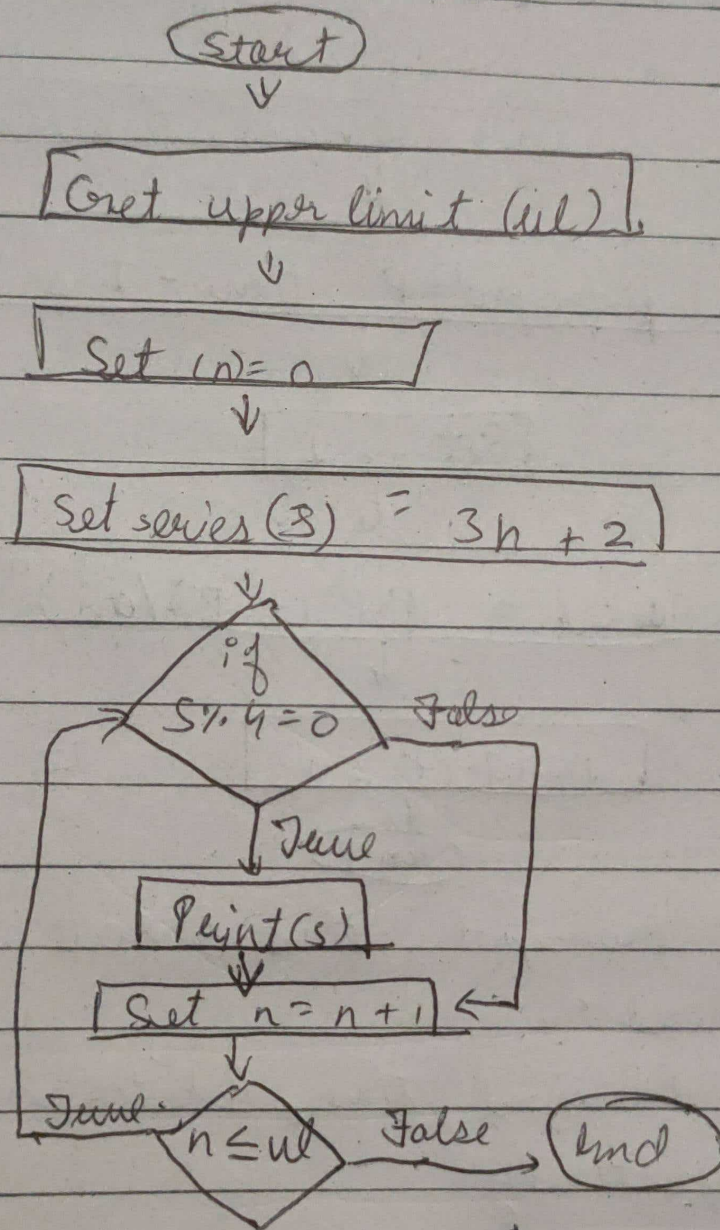 Start
Get upper limit (ul)
Set (n)= 0
Set series (S) = 3n + 2
if
S % 4 = 0
False
True
Print (s)
Set n = n + 1
True
n ≤ ul
False
End